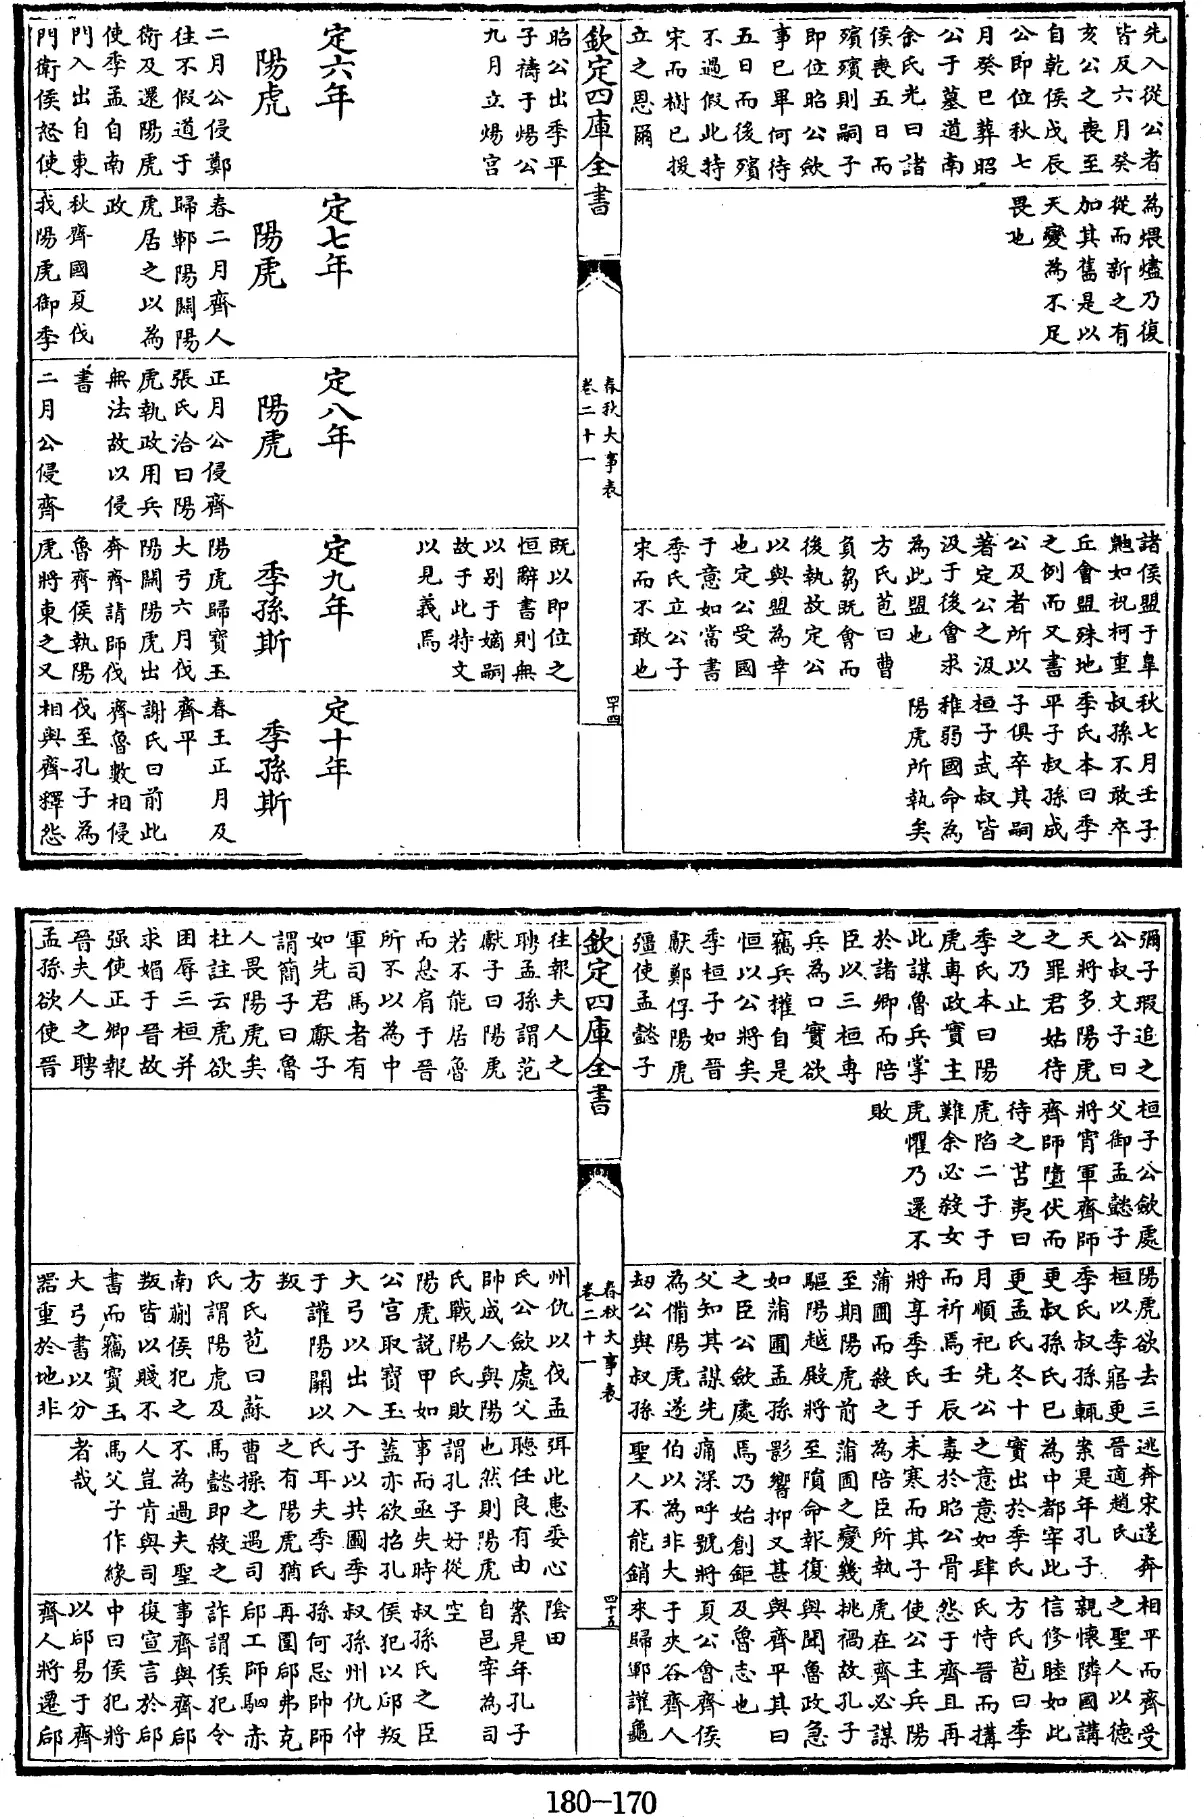 先入從公者
皆反六月癸
亥公之喪至
自乾侯戊辰
公即位秋七
月癸巳葬昭
公于墓道南
余氏光曰諸
侯喪五日而
殯殯則嗣子
即位昭公歛
事已畢何待
五日而後殯
不過假此特
宋而樹已援
立之恩爾
為煨燼乃復
從而新之有
加其舊是以
天變為不足
畏也
諸侯盟于臯
鼬如祝柯重
丘會盟殊地
之例而又書
公及者所以
著定公之汲
汲于後會求
為此盟也
方氏苞曰曹
負芻既會而
後執故定公
以與盟為幸
也定公受國
于意如當書
季氏立公子
宋而不敢也
秋七月壬子
叔孫不敢卒
季氏本曰季
平子叔孫成
子俱卒其嗣
桓子武叔皆
稚弱國命為
陽虎所執矣
欽定四庫全書
春秋大事表
卷二十一
四十四
昭公出季平
子禱于煬公
九月立煬宮
定六年
陽虎
二月公侵鄭
往不假道于
衛及還陽虎
使季孟自南
門入出自東
門衛侯怒使
定七年
陽虎
春二月齊人
歸鄆陽關陽
虎居之以為
政
秋齊國夏伐
我陽虎御季
定八年
陽虎
正月公侵齊
張氏洽曰陽
虎執政用兵
無法故以侵
書
二月公侵齊
既以即位之
恒辭書則無
以別于嫡嗣
故于此特文
以見義焉
定九年
季孫斯
陽虎歸寶玉
大弓六月伐
陽關陽虎出
奔齊請師伐
魯齊侯執陽
虎將東之又
定十年
季孫斯
春王正月及
齊平
謝氏曰前此
齊魯數相侵
伐至孔子為
相與齊釋怨
彌子瑕追之
公叔文子曰
天將多陽虎
之罪君姑待
之乃止
季氏本曰陽
虎專政實主
此謀魯兵掌
於諸卿而陪
臣以三桓專
兵為口實欲
竊兵權自是
恒以公將矣
季桓子如晉
獻鄭俘陽虎
彊使孟懿子
桓子公歛處
父御孟懿子
將宵軍齊師
齊師墮伏而
待之苫夷曰
虎陷二子于
難余必殺女
虎懼乃還不
敗
陽虎欲去三
桓以季寤更
季氏叔孫輒
更叔孫氏已
更孟氏冬十
月順祀先公
而祈焉壬辰
將享季氏于
蒲圃而殺之
至期陽虎前
驅陽越殿將
如蒲圃孟孫
之臣公歛處
父知其謀先
為備陽虎遂
劫公與叔孫
逃奔宋遂奔
晉適趙氏
案是年孔子
為中都宰此
實出於季氏
之意意如肆
毒於昭公骨
未寒而其子
為陪臣所執
蒲圃之變幾
至隕命報復
影響抑又甚
焉乃始創鉅
痛深呼號將
伯以為非大
聖人不能銷
相平而齊受
之聖人以德
親懷隣國講
信修睦如此
方氏苞曰季
氏恃晉而搆
怨于齊且再
使公主兵陽
虎在齊必謀
挑禍故孔子
與聞魯政急
與齊平其曰
及魯志也
夏公會齊侯
于夾谷齊人
來歸鄆讙龜
欽定四庫全書
春秋大事表
卷二十一
四十五
往報夫人之
聘孟孫謂范
獻子曰陽虎
若不能居魯
而息肩于晉
所不以為中
軍司馬者有
如先君獻子
謂簡子曰魯
人畏陽虎矣
杜註云虎欲
困辱三桓并
求媚于晉故
强使正卿報
晉夫人之聘
孟孫欲使晉
州仇以伐孟
氏公歛處父
帥成人與陽
氏戰陽氏敗
陽虎說甲如
公宮取寶玉
大弓以出入
于讙陽關以
叛
方氏苞曰蘇
氏謂陽虎及
南蒯侯犯之
叛皆以賤不
書而竊寶玉
大弓書以分
器重於地非
弭此患委心
聽任良有由
也然則陽虎
謂孔子好從
事而亟失時
蓋亦欲招孔
子以共圖季
氏耳夫季氏
之有陽虎猶
曹操之遇司
馬懿即殺之
不為過夫聖
人豈肯與司
馬父子作緣
者哉
隂田
案是年孔子
自邑宰為司
空
叔孫氏之臣
侯犯以郈叛
叔孫州仇仲
孫何忌帥師
再圍郈弗克
郈工師駟赤
詐謂侯犯令
事齊與齊郈
復宣言於郈
中曰侯犯將
以郈易于齊
齊人將遷郈
180-170